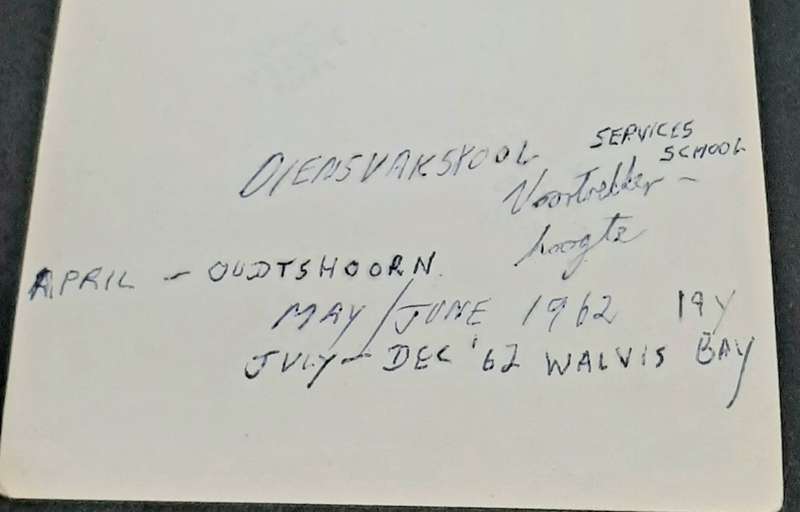 DIENSVAKSKOOL SERVICES SCHOOL
Voortrekker-
hoogte
APRIL - OUDTSHOORN.
MAY/JUNE 1962 19y
JULY - DEC '62 WALVIS BAY